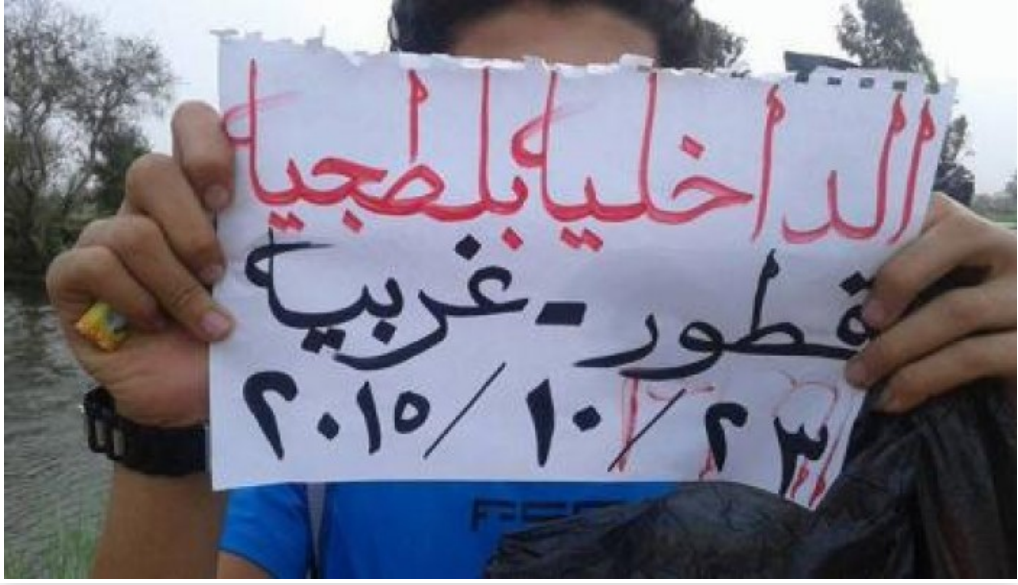 الداخلية بلطجية
قطور - غربية
٢٣ / ١٠ / ٢٠١٥